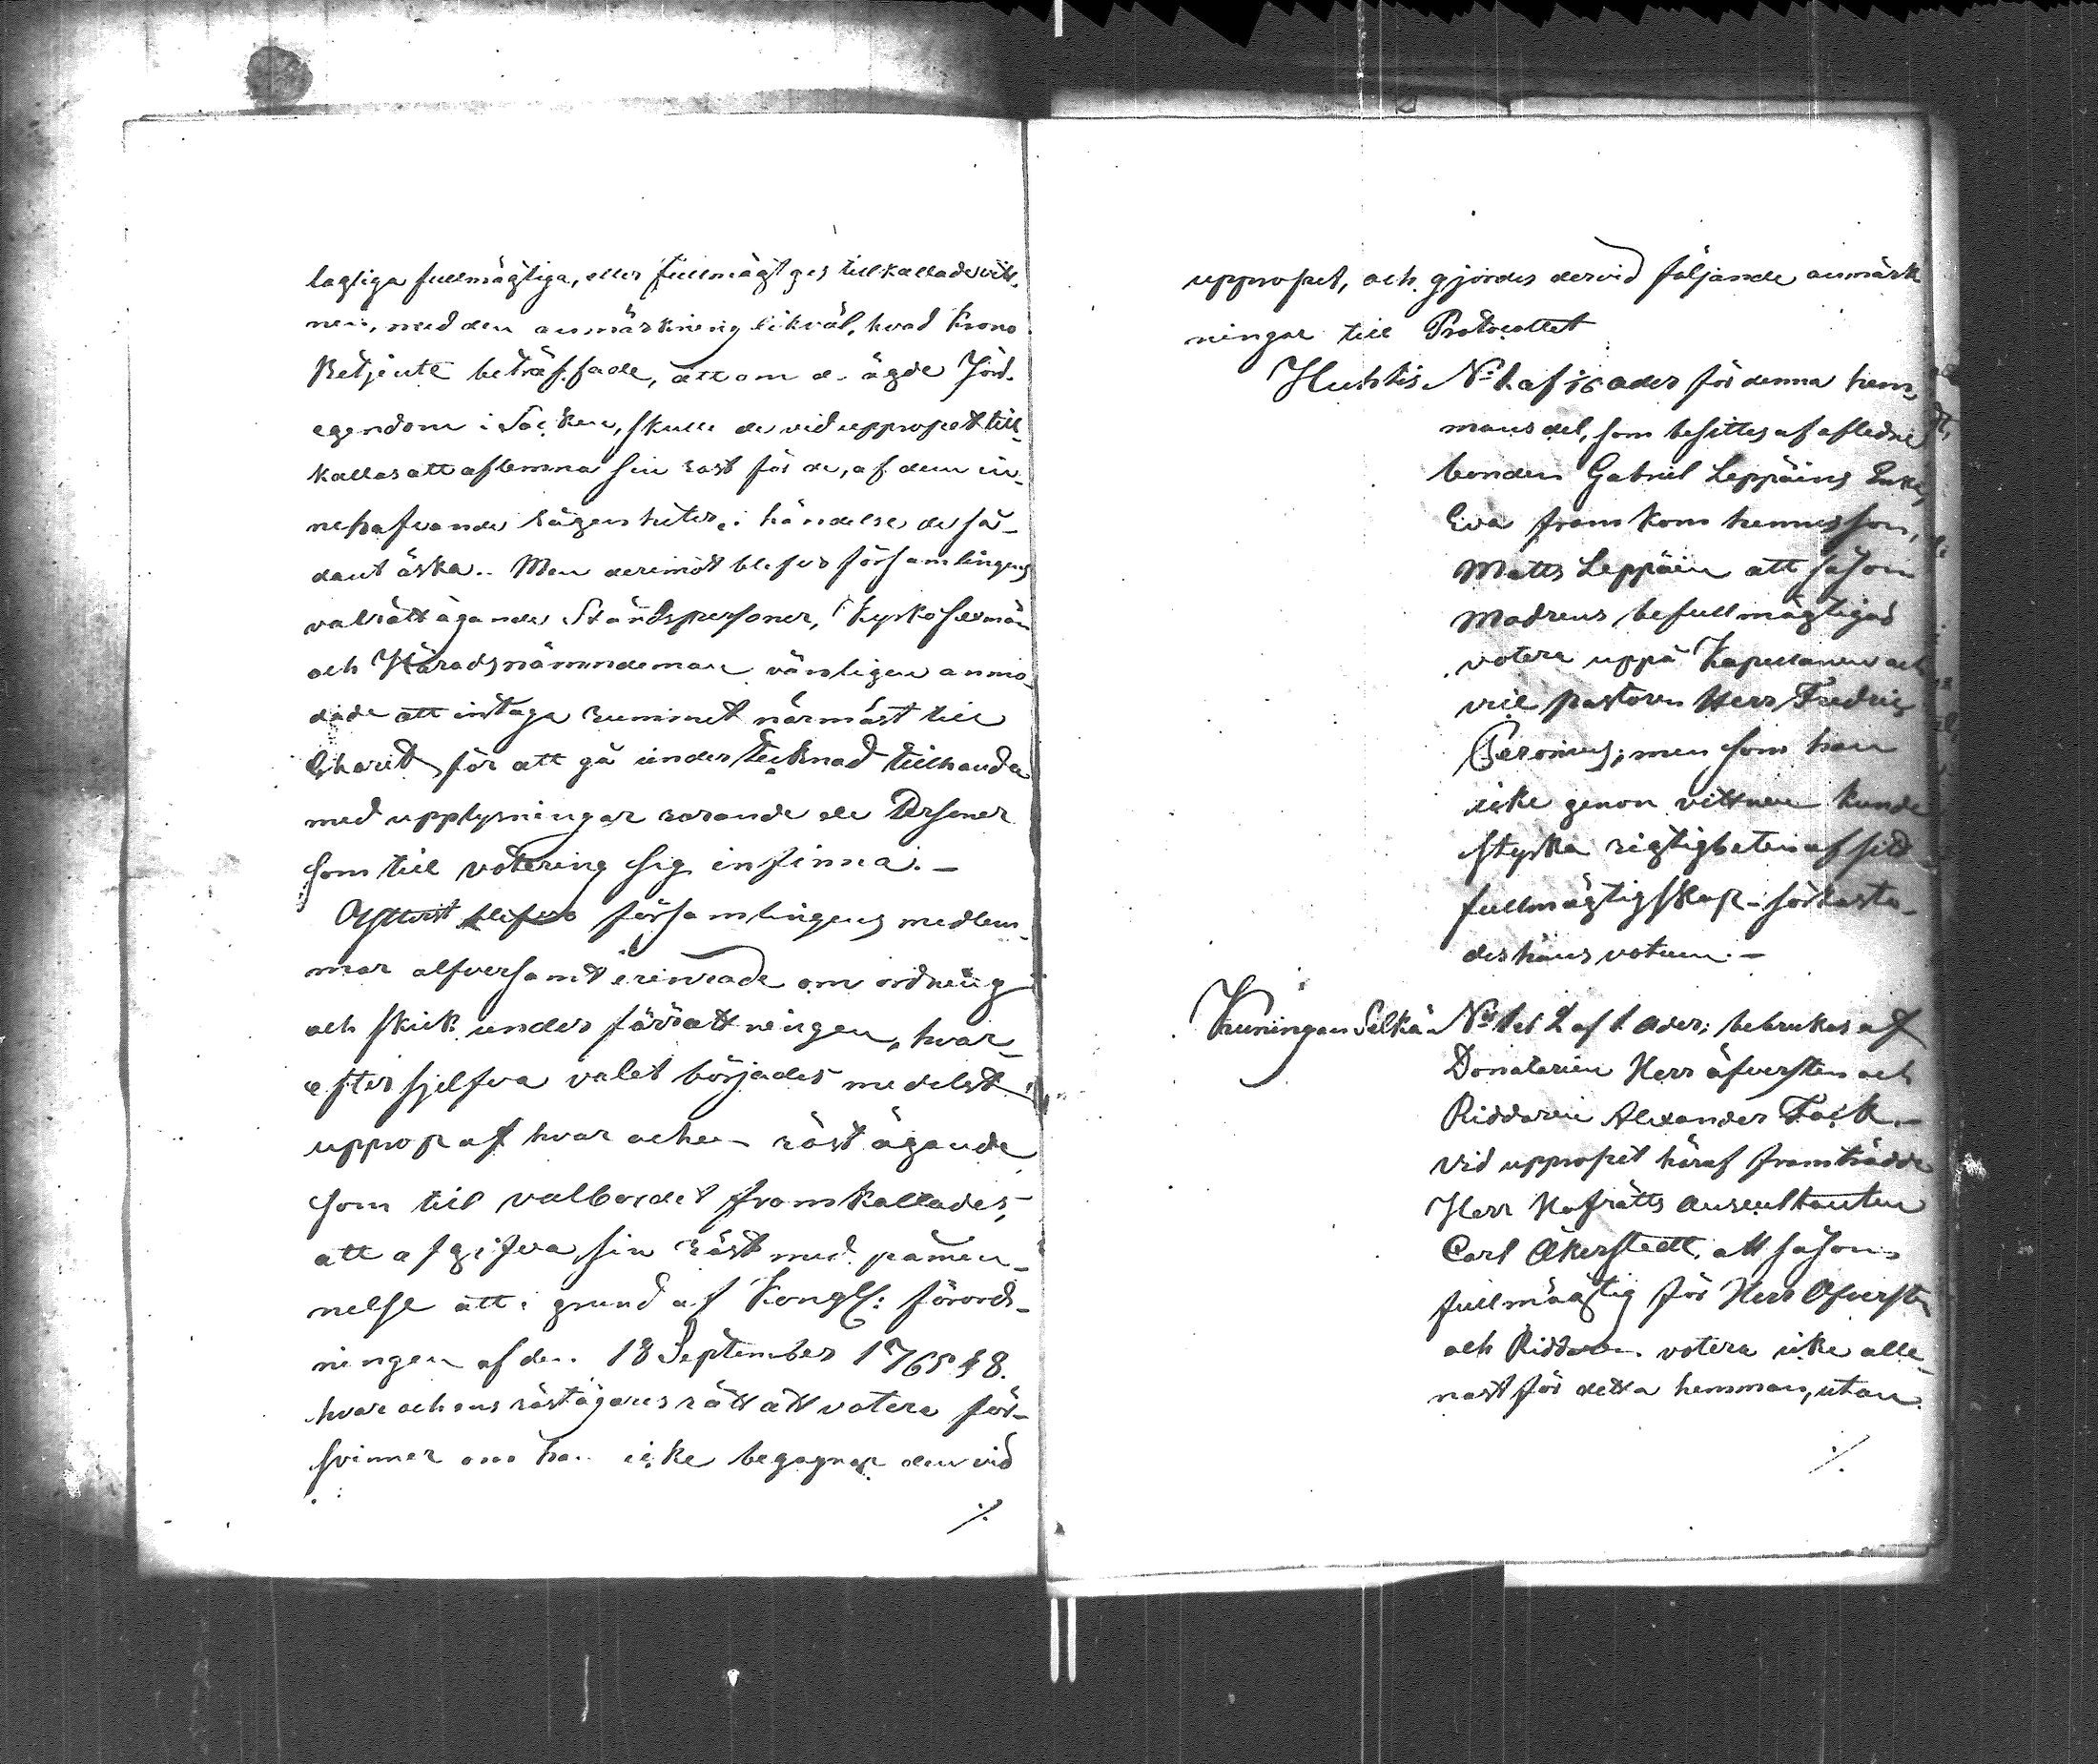 lagliga fullmägtige, eller fullmägtiges tillkallade vitt-
nen, med den anmärkning likväl, hvad Krono
Betjente beträffade, att om de ägde Jord-
egendom i Socken, skulle de vid uppropet till-
kallas att aflemna sin röst för de, af dem in-
nehafvande lägenheter, i händelse de så-
dant äska. Men deremot blefvo församlingens
valrätt ägande Ståndspersoner, Kyrko sexmän
och Häradsnämndeman vänligen anmo-
dade att intaga rummet närmast till
för att gå undertecknad tillhanda
med upplysningar rörande de Personer
som till votering sig infinna. –
Ytterst blefvo församlingens medlem-
mar alfversamt erinrade om ordning
och skick under förrättningen, hvar-
efter sjelfva valet börjades medelst
upprop af hvar och en röst ägande
som till valbordet framkallades,
att afgifva sin röst med påmin-
nelse att i grund af Kongl: förord-
ningen af den 18 September 1765 § 8.
hvar och ens röstägares rätt att votera för-
svinner om han icke begagnar den vid
./.
uppropet, och gjordes dervid följande anmärk
ningar till Protocollet
Huhtis No 1. af 16 ader för denna hem-
mans del, som besittes af afledne
bonden Gabriel Leppäins Enka,
Eva framkom hennes son,
Matts Leppäin att såsom
modrens befullmägtigad
votera uppå Kapellanen och
vice pastoren Herr Fredric
Peronius; men som han
icke genom vittnen kunde
styrka rigtigheten af sitt
fullmägtigskap förkasta-
des hans votum. –
Kuningan Selkä No 1 et 2 af 1. Ader; bebrukas af
Donatarien Herr öfversten och
Riddaren Alexander Fock. –
Vid uppropet häraf framträdde
Herr Hofrätts Auscultanten
Carl Åkerstedt, att såsom
fullmägtig för Herr Öfversten
och Riddaren votera icke alle-
nast för detta hemman, utan
./.